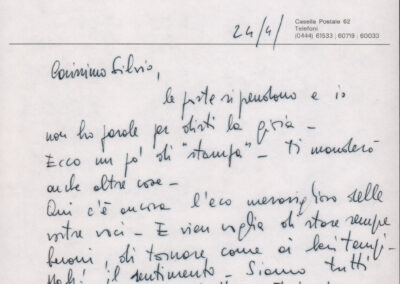 Casella Postale 62
Telefoni
(0444) 61533 | 60719 | 60033
24/4/
Carissimo Silvio,
le feste si perdono e io
non ho parole per dirti la gioia -
Ecco un pò di "stampa" - Ti manderò
anche altre cose -
Qui c'è ancora l'eco meraviglioso delle
vostre voci - E vien voglia di stare sempre
buoni, di tornare come ai bei tempi -
il sentimento - Siamo tutti